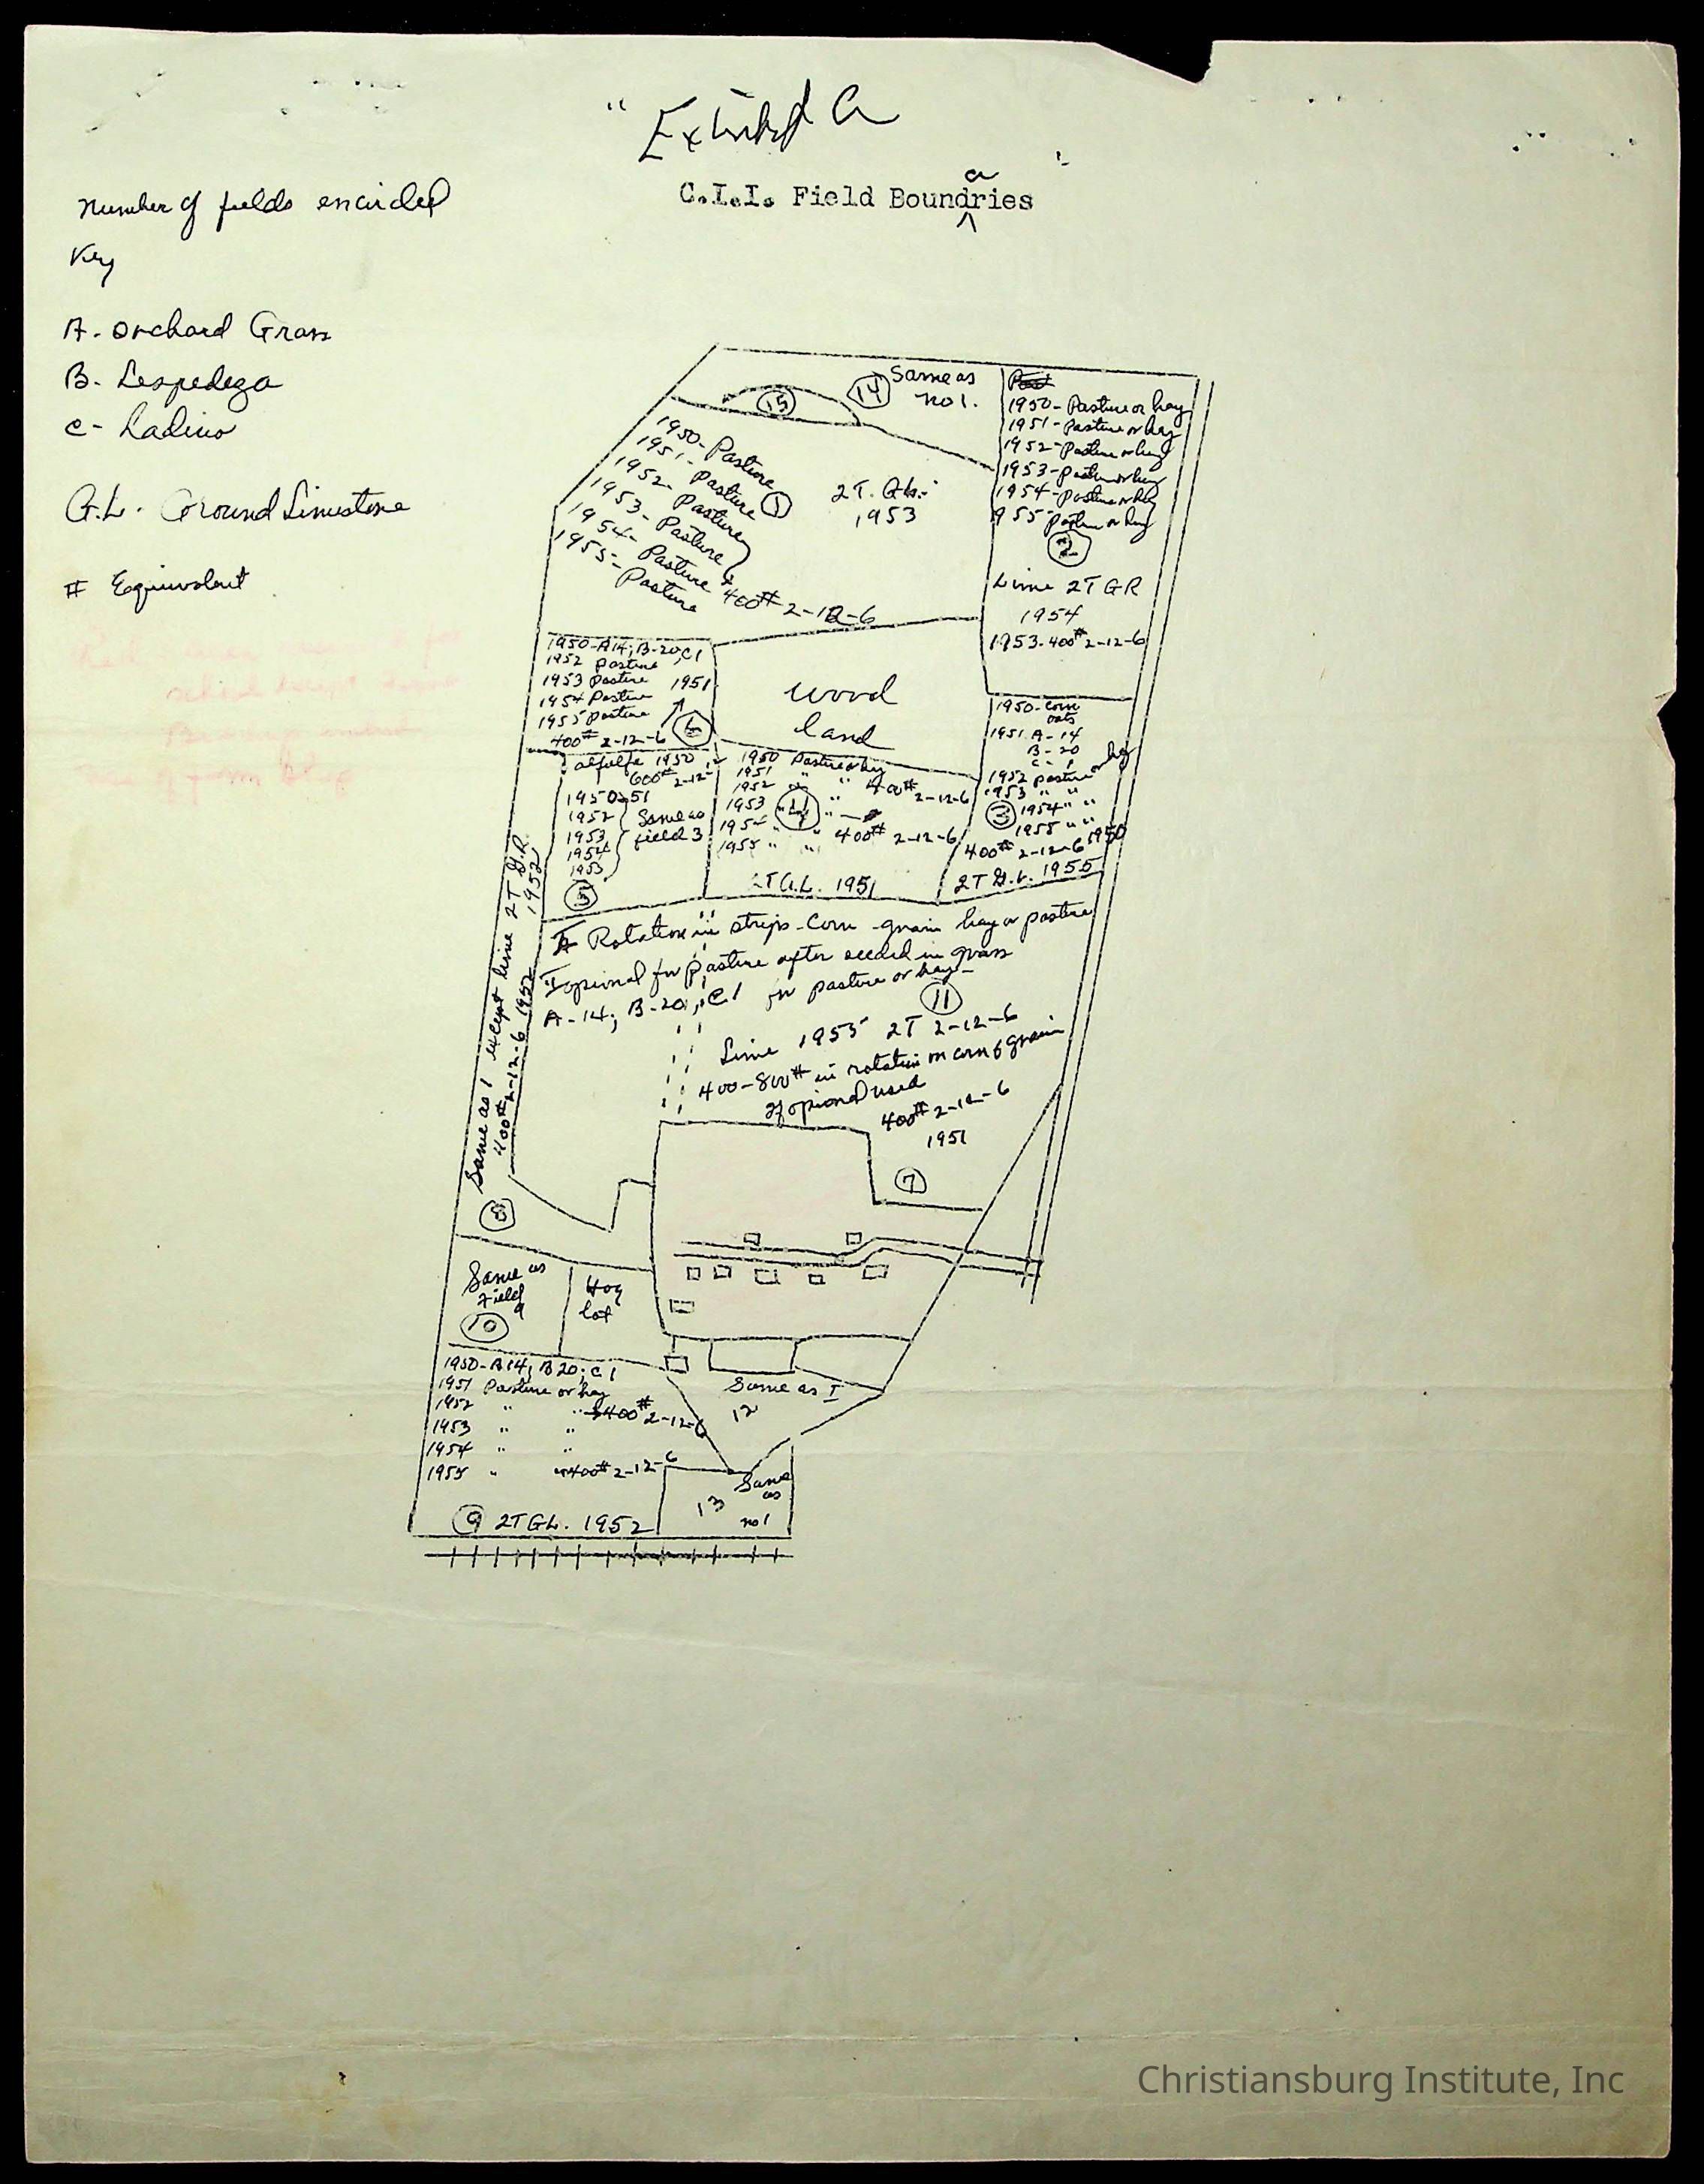 " Exhibit A "
C.I.I. Field Boundaries
number of fields encircled
Key
A. Orchard Grass
B- Lespedeza
C- Ladino
G.L. Ground Limestone
# Equivalent
15
14 Same as
no 1.
1950- Pasture
1951- Pasture
1952- Pasture
1953- Pasture
1954- Pasture
1955- Pasture
400# 2-12-6
1
2T. GL.
1953
1950- Pasture or hay
1951- Pasture or hay
1952- Pasture or hay
1953- Pasture or hay
1954- Pasture or hay
1955- Pasture or hay
2
Lime 2T GR
1954
1953-400# 2-12-6
1950-A14; B-20; C1
1952 Pasture
1953 Pasture 1951
1954 Pasture
1955 Pasture
400# 2-12-6 6
wood
land
1950- Corn
oats
1951 A-14
B-20
C-1
1952 pasture or hay
1953 " "
3 1954 " "
1955 " "
400# 2-12-6 1950
2T G.L. 1955
alfalfa 1950
600# 2-12-
1950-51
1952
1953
1954
1953
Same as
field 3
5
1950 Pasture or hay
1951 " "
1952 " 400# 2-12-6
1953 "
1954 " "
1955 " " 400# 2-12-6
4
2T G.L. 1951
Rotation in strips - Corn - grain hay or pasture
for pasture after seeded in grass
A-14; B-20; C1 for pasture or hay-
11
Lime 1955 2T 2-12-6
400-800# in rotation on corn & grain
if used
400# 2-12-6
1951
7
Same as 1 except lime 2T G.R. 1952
400# 2-12-6 1952
8
Same as
Field
9
10
Hog
lot
1950-A14; B20; C1
1951 Pasture or hay
1952 " " 400# 2-12-6
1953 " "
1954 " "
1955 " 400# 2-12-6
9 2T GL. 1952
Same as I
12
13 Same
as
no 1
Christiansburg Institute, Inc